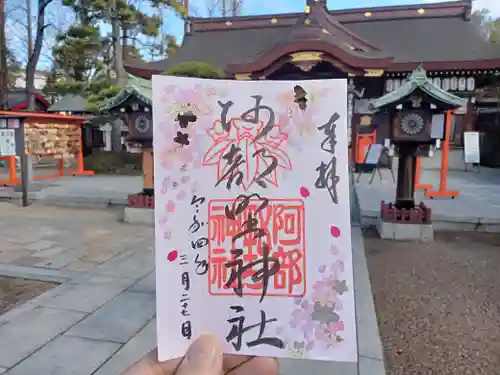 奉拝
阿部野神社
阿部野神社
令和四年
三月二七日